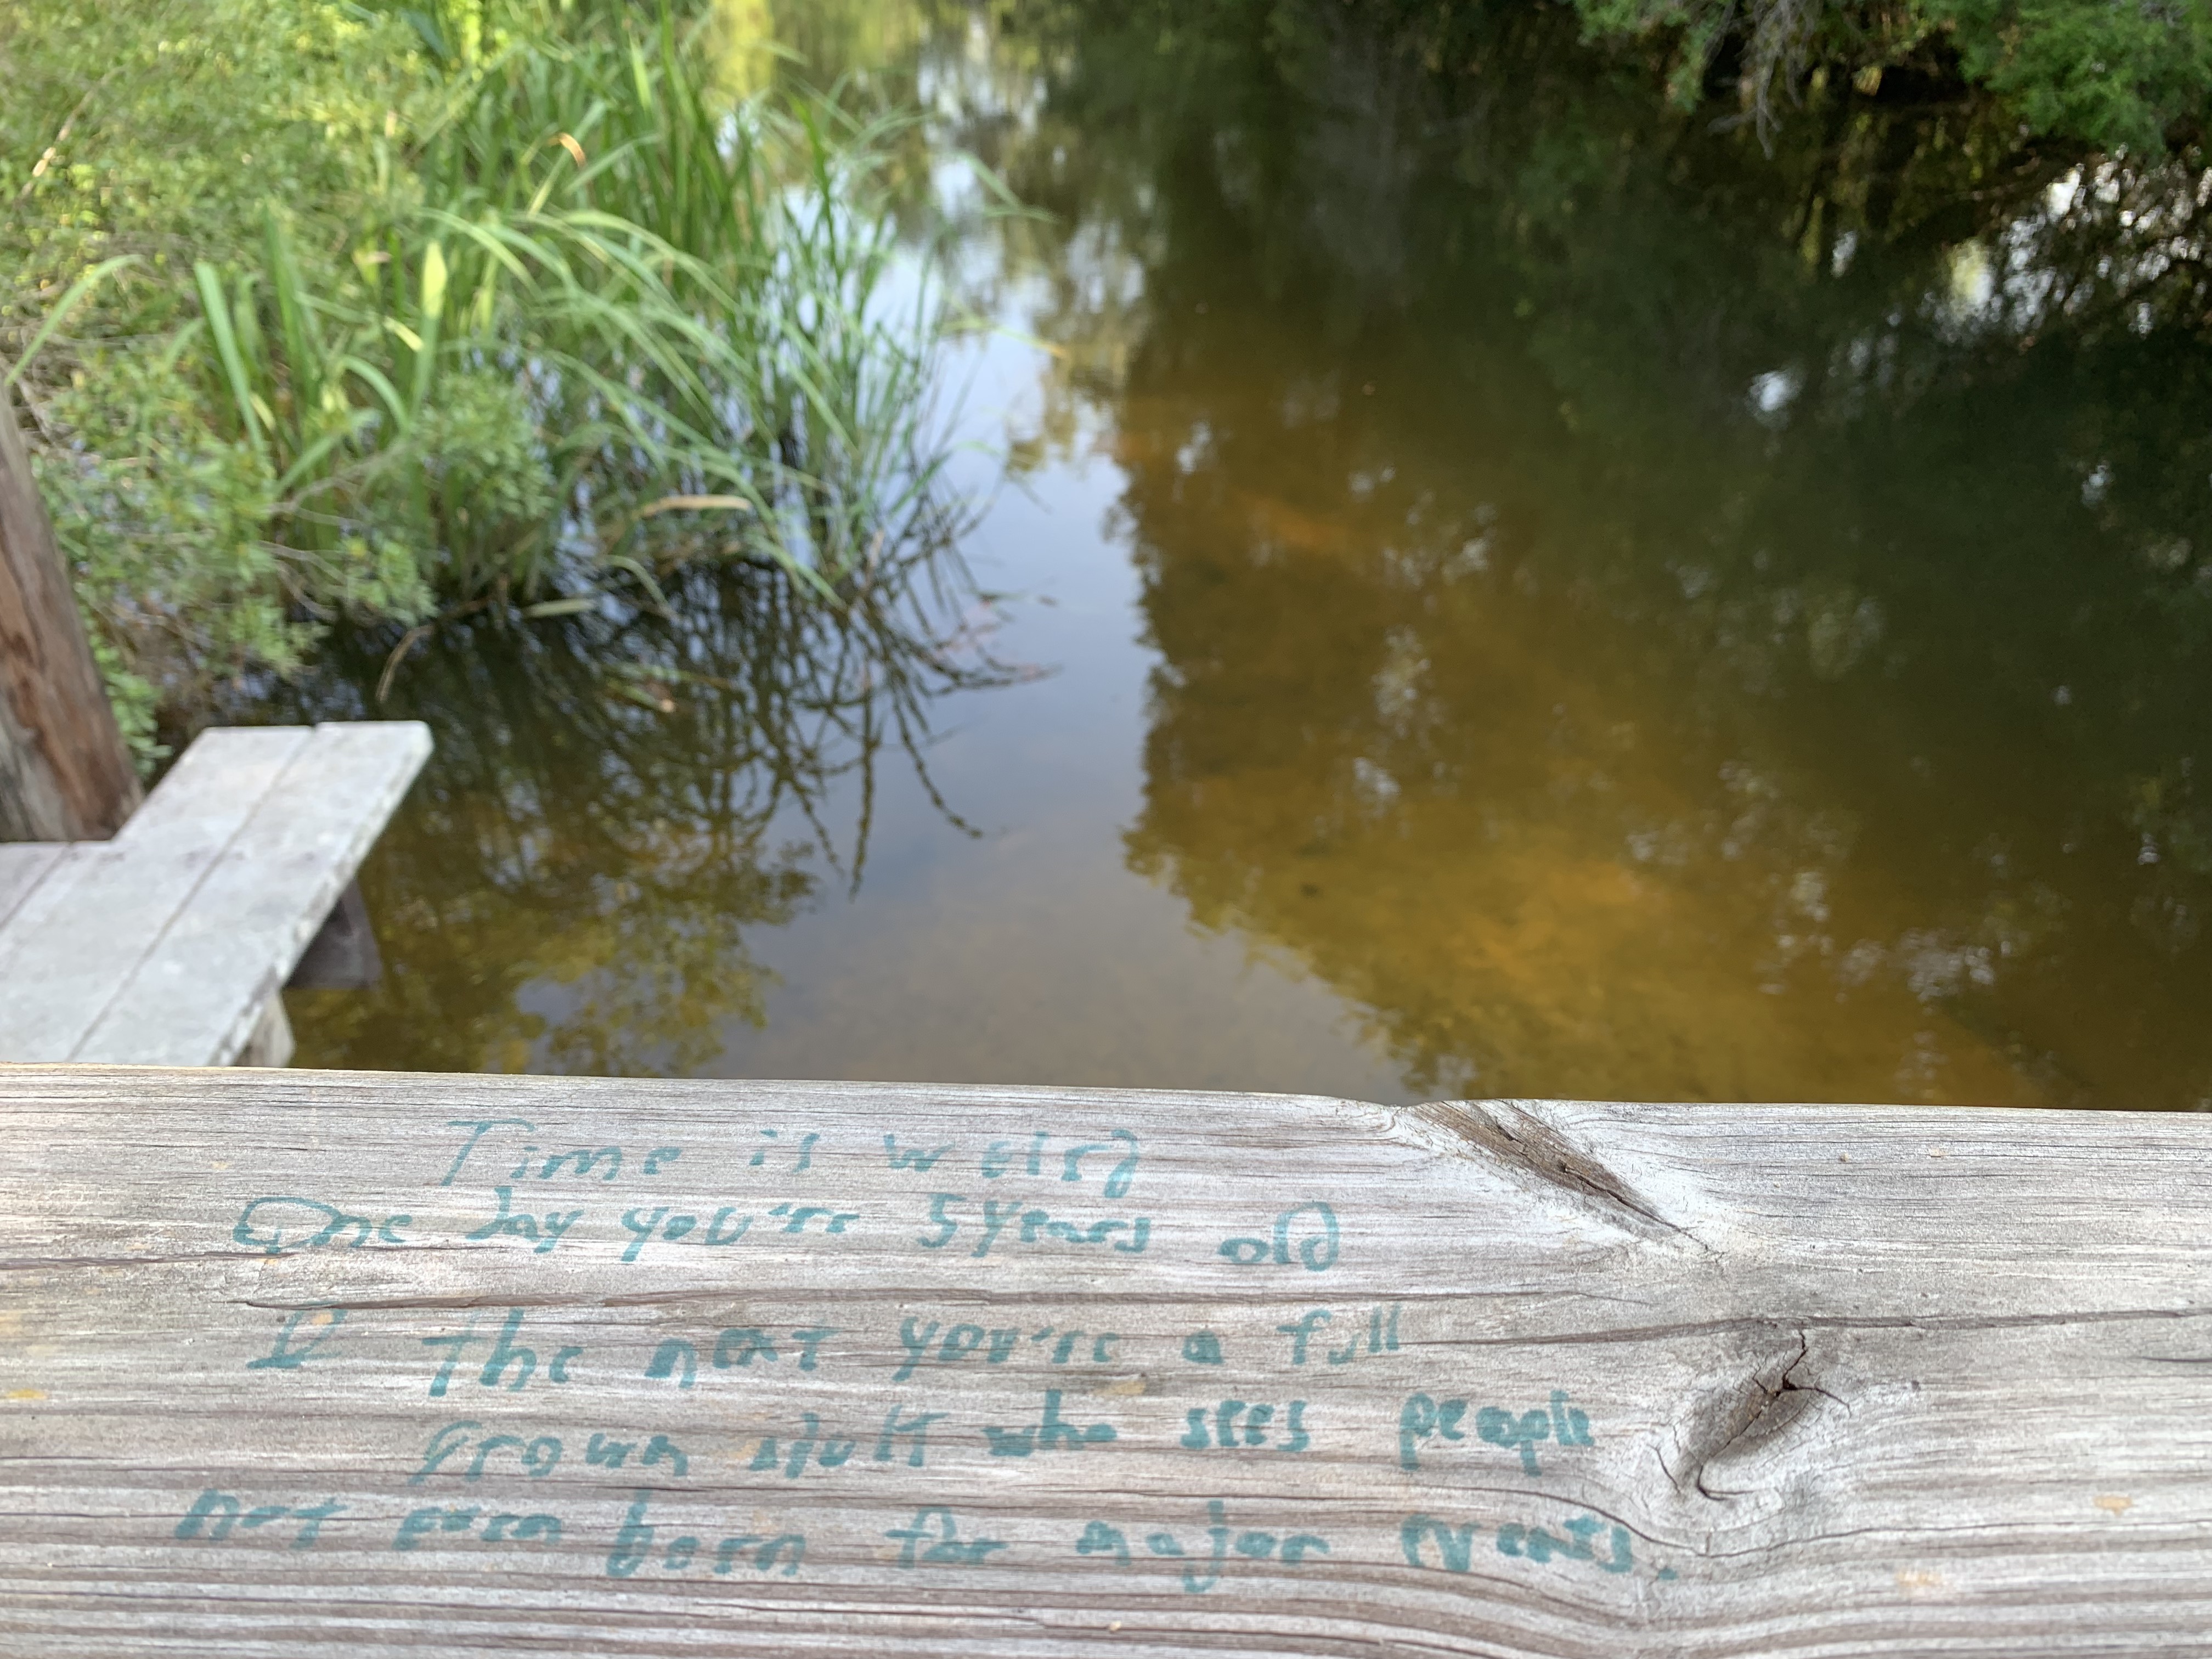 Time is weird
One day you're 5 years old
& the next you're a full
grown adult who sees people
not even born for major events.